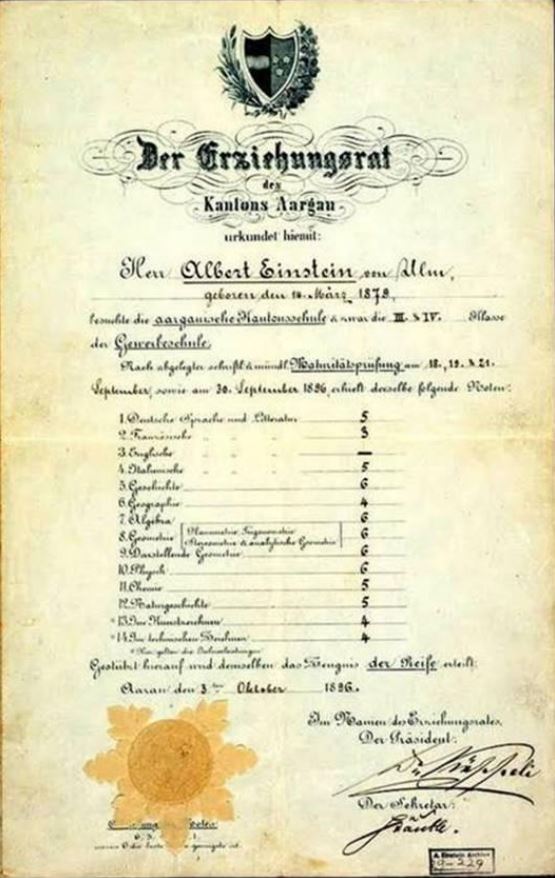 Der Erziehungsrat
des
Kantons Aargau
urkundet hiemit:
Herr Albert Einstein von Ulm,
geboren den 14. März 1879,
besuchte die aargauische Kantonsschule & zwar die III. & IV. Klasse
der Gewerbeschule.
Nach abgelegter schriftl. & mündl. Maturitätsprüfung am 18., 19. & 21.
September, sowie am 30. September 1896, erhielt derselbe folgende Noten:
1. Deutsche Sprache und Litteratur 5
2. Französische " " " 3
3. Englische " " " —
4. Italienische " " " 5
5. Geschichte 6
6. Geographie 4
7. Algebra 6
8. Geometrie (Planimetrie, Trigonometrie 6
Stereometrie & analytische Geometrie)
9. Darstellende Geometrie 6
10. Physik 6
11. Chemie 5
12. Naturgeschichte 5
* 13. Im Kunstzeichnen 4
* 14. Im technischen Zeichnen 4
* Hier gelten die Jahresleistungen.
Gestützt hierauf wird demselben das Zeugnis der Reife erteilt.
Aarau den 3ten Oktober 1896.
Im Namen des Erziehungsrates,
Der Präsident:
Der Sekretär:
A. Einstein Archive
29-229